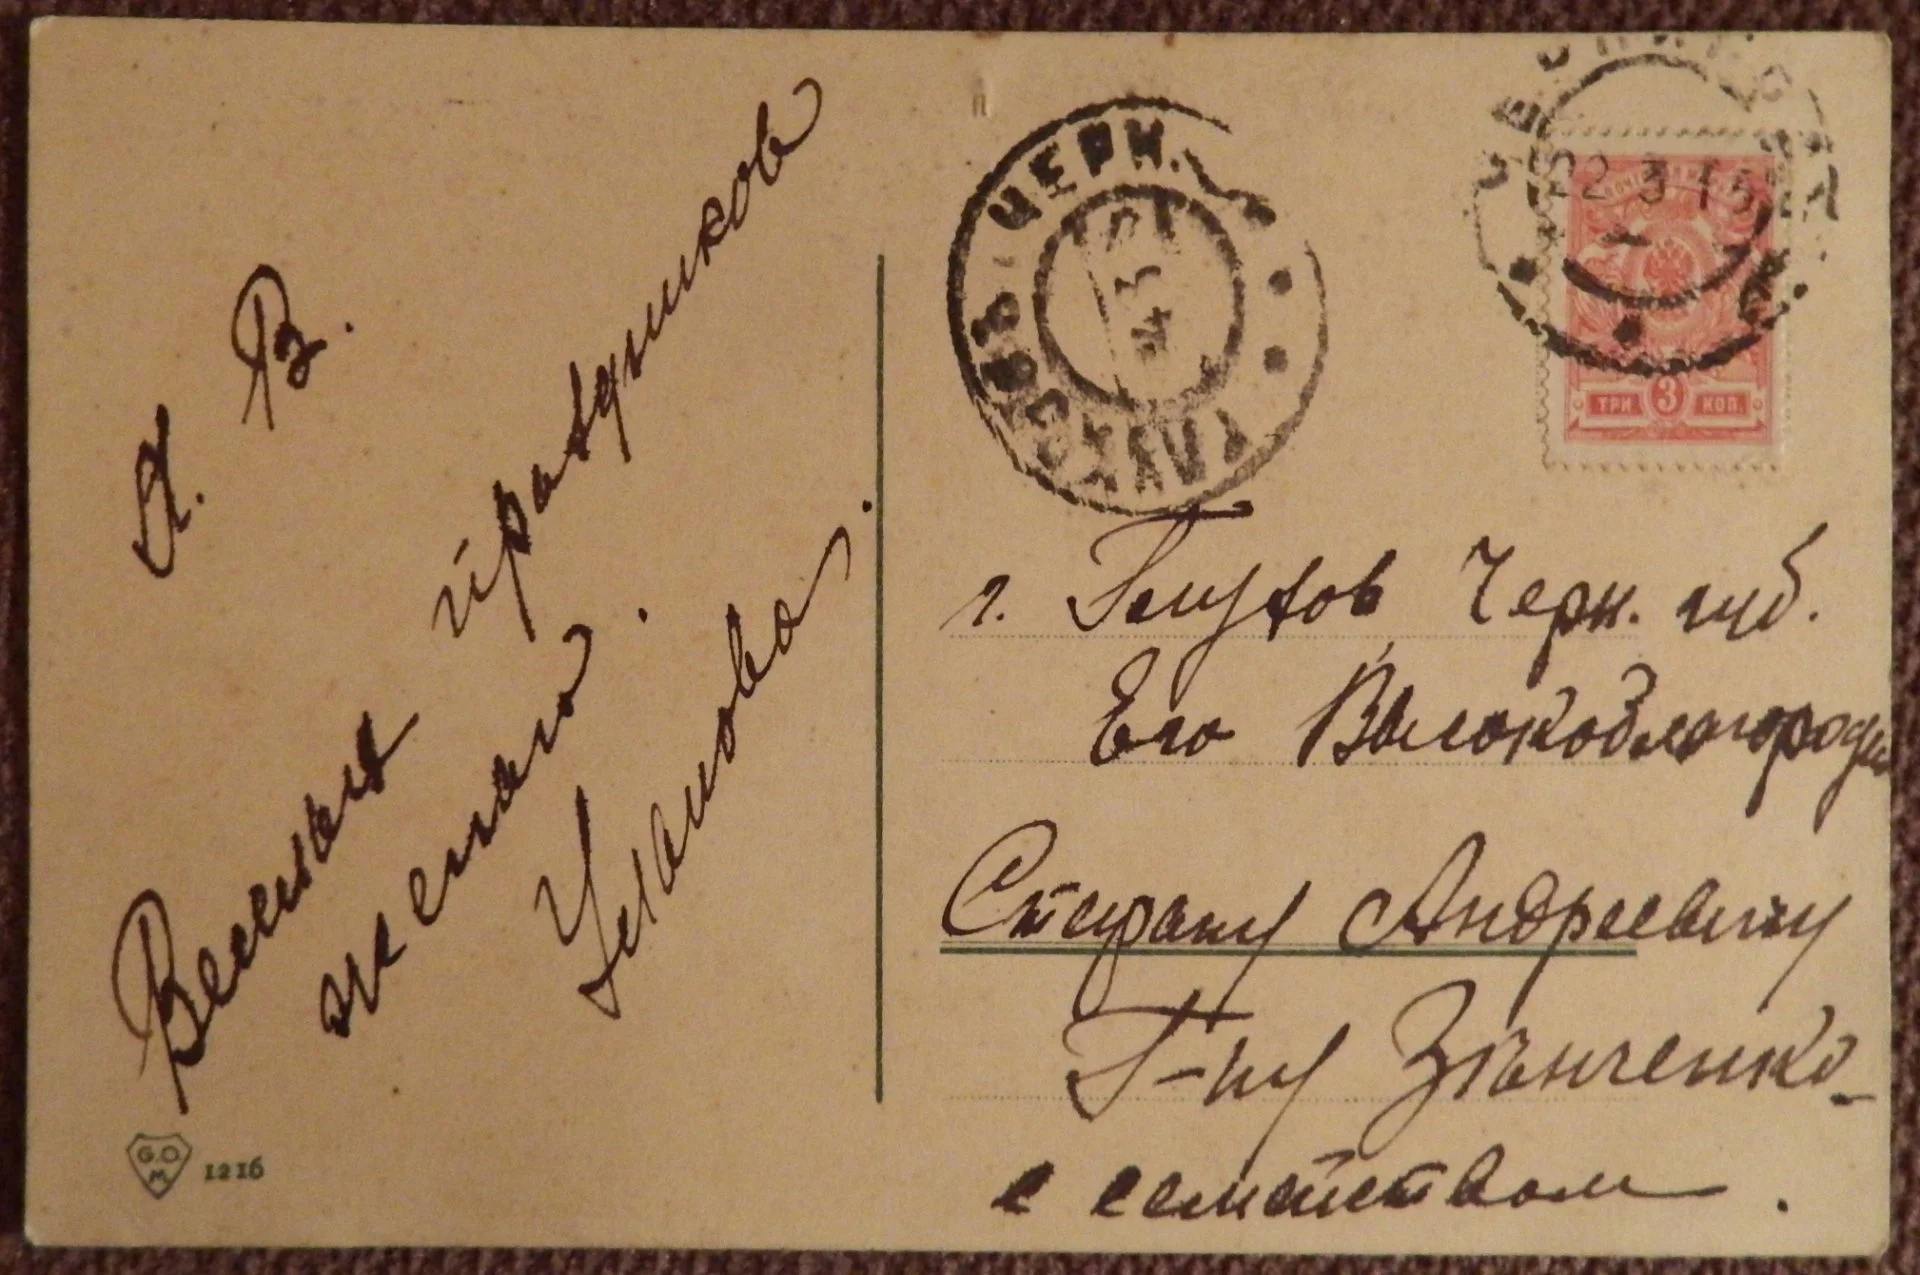 Х. В.
Веселых праздников
желаю.
Уланова.
G.O.
M.
1216
ГЛУХОВЪ ЧЕРН.
22 3 15
ТРИ 3 КОП.
г. Глухов Черн. губ.
Его Высокоблагороди
Стефану Андреевичу
Г-ну Зѣнченко
с семейством.